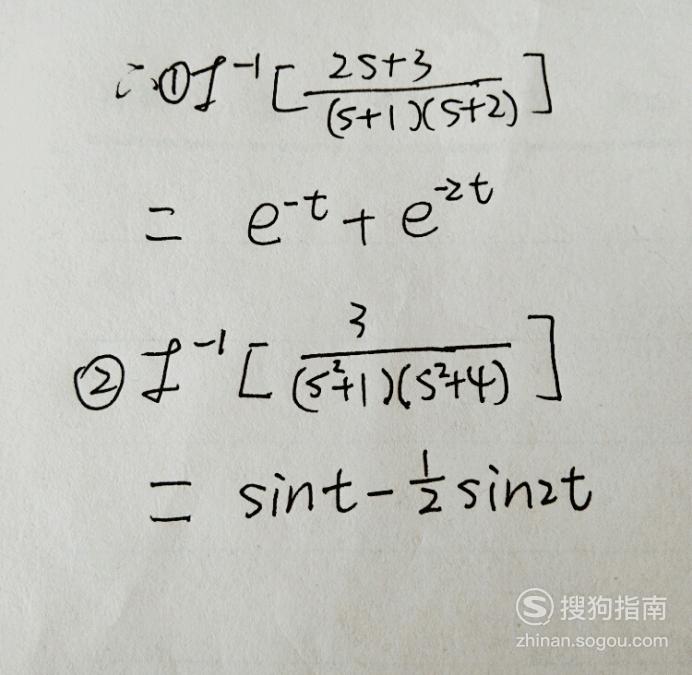 ∴①ℒ⁻¹[(2s+3)/((s+1)(s+2))]
= e^{-t} + e^{-2t}
②ℒ⁻¹[3/((s²+1)(s²+4))]
= sint - ½ sin2t
搜狗指南
zhinan.sogou.com